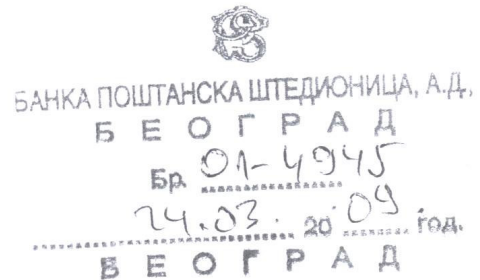 БАНКА ПОШТАНСКА ШТЕДИОНИЦА, А.Д.,
БЕОГРАД
Бр. 01-4945
24.03. 20 09 год.
БЕОГРАД